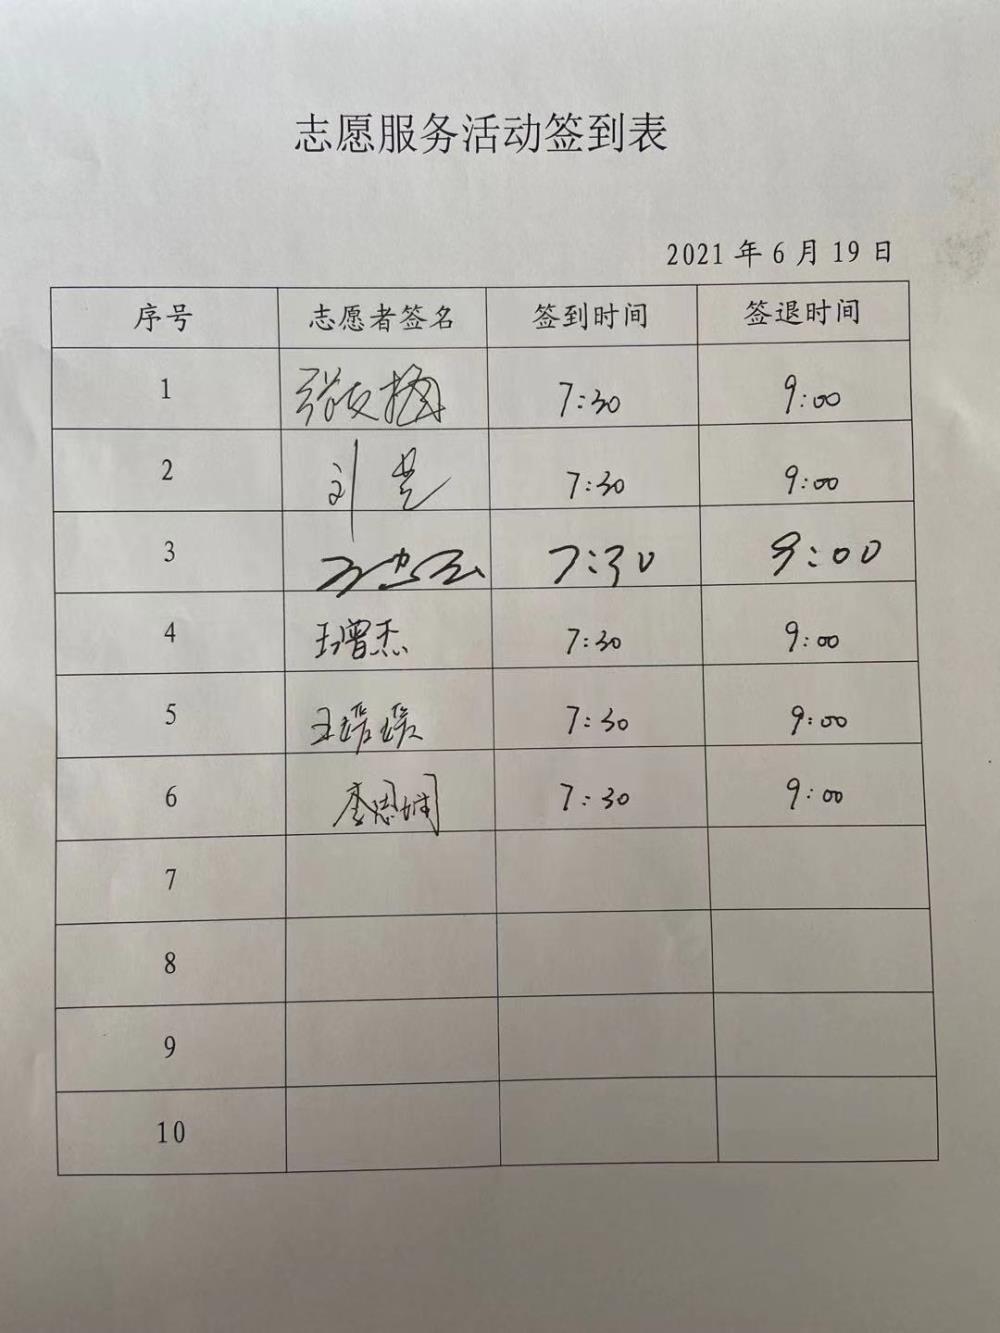 志愿服务活动签到表
2021 年 6 月 19 日
序号 志愿者签名 签到时间 签退时间
1 7:30 9:00
2 刘 7:30 9:00
3 7:30 9:00
4 王增杰 7:30 9:00
5 王瑶瑶 7:30 9:00
6 李恩娴 7:30 9:00
7
8
9
10